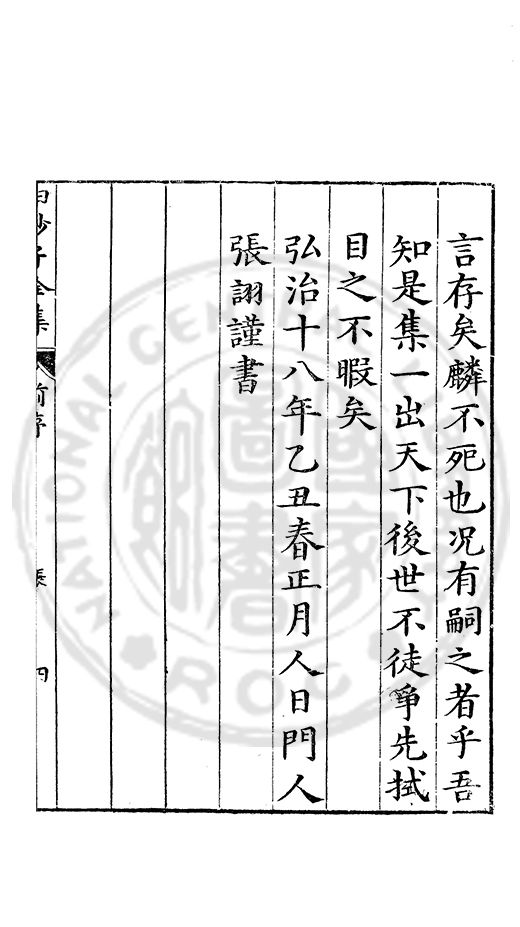 言存矣麟不死也况有嗣之者乎吾
知是集一出天下後世不徒爭先拭
目之不暇矣
弘治十八年乙丑春正月人日門人
張詡謹書
白沙子全集
前序
張
四
NATIONAL CENTRAL
R.O.C
國家圖書館